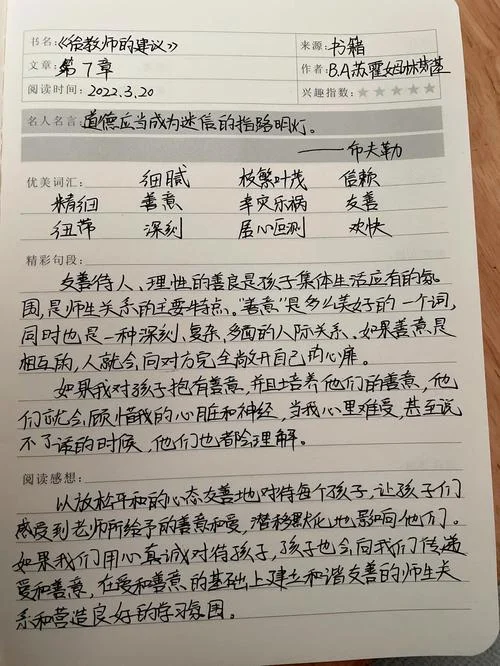 书名：《给教师的建议》 来源：书籍
文章：第7章 作者：B.A苏霍姆林斯基
阅读时间：2022.3.20 兴趣指数：★★★★★
名人名言：道德应当成为迷信的指路明灯。
——布夫勒
优美词汇： 细腻 枝繁叶茂 信赖
精细 善意 幸灾乐祸 友善
纽带 深刻 居心叵测 欢快
精彩句段：
友善待人、理性的善良是孩子集体生活应有的氛
围,是师生关系的主要特点。"善意"是多么美好的一个词,
同时也是一种深刻、复杂、多面的人际关系。如果善意是
相互的,人就会向对方完全敞开自己的心扉。
如果我对孩子抱有善意,并且培养他们的善意,他
们就会顾惜我的心脏和神经,当我心里难受,甚至说
不了话的时候,他们也都会理解。
阅读感想：
以放松平和的心态友善地对待每个孩子,让孩子们
感受到老师所给予的善意和爱,潜移默化地影响他们。
如果我们用心真诚对待孩子,孩子也会向我们传递
爱和善意,在爱和善意的基础上建立和谐友善的师生关
系和营造良好的学习氛围。